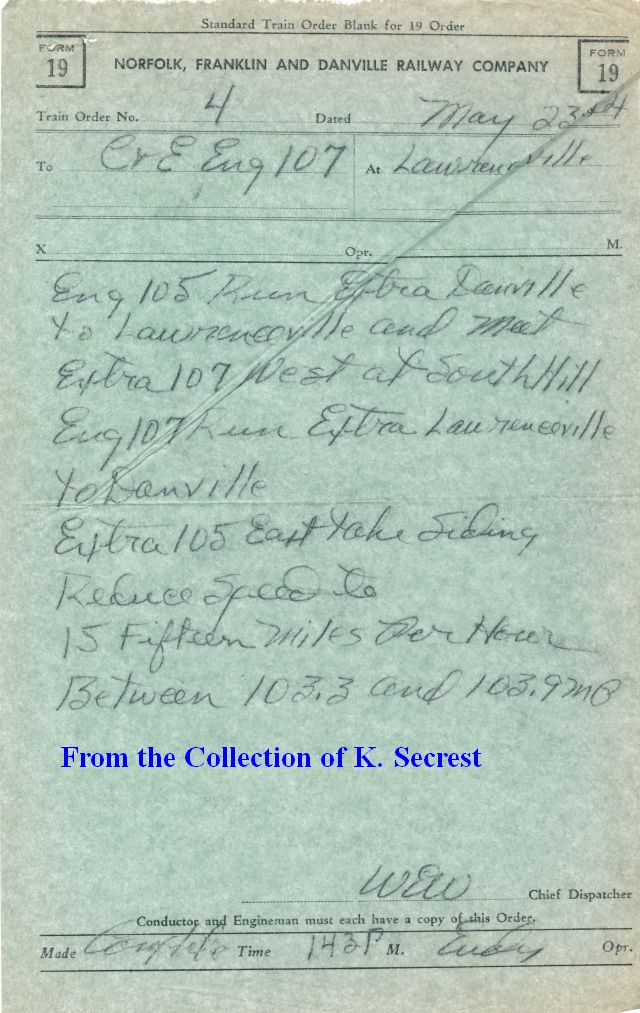 Standard Train Order Blank for 19 Order
FORM 19
NORFOLK, FRANKLIN AND DANVILLE RAILWAY COMPANY
FORM 19
Train Order No. 4 Dated May 23rd
To C&E Eng 107 At Lawrenceville
X Opr. M.
Eng 105 Run Extra Danville
to Lawrenceville and Meet
Extra 107 West at South Hill
Eng 107 Run Extra Lawrenceville
to Danville
Extra 105 East take Siding
Reduce Speed to
15 Fifteen Miles Per Hour
Between 103.3 and 103.9 MP
From the Collection of K. Secrest
WEW Chief Dispatcher
Conductor and Engineman must each have a copy of this Order.
Made Complete Time 143P M. Opr.